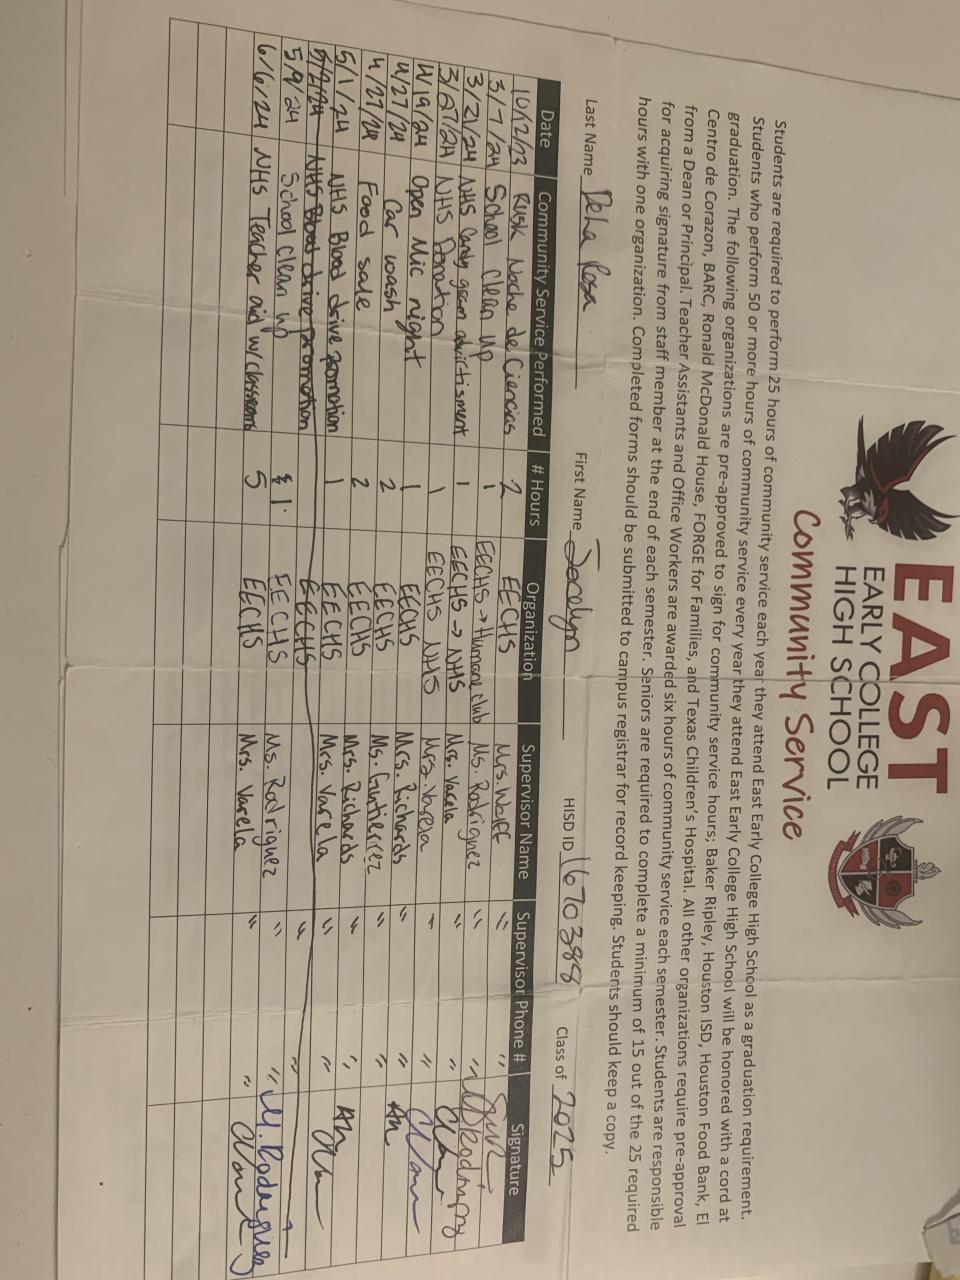 EAST
EARLY COLLEGE
HIGH SCHOOL
Community Service
Students are required to perform 25 hours of community service each year they attend East Early College High School as a graduation requirement.
Students who perform 50 or more hours of community service every year they attend East Early College High School will be honored with a cord at
graduation. The following organizations are pre-approved to sign for community service hours; Baker Ripley, Houston ISD, Houston Food Bank, El
Centro de Corazon, BARC, Ronald McDonald House, FORGE for Families, and Texas Children's Hospital. All other organizations require pre-approval
from a Dean or Principal. Teacher Assistants and Office Workers are awarded six hours of community service each semester. Students are responsible
for acquiring signature from staff member at the end of each semester. Seniors are required to complete a minimum of 15 out of the 25 required
hours with one organization. Completed forms should be submitted to campus registrar for record keeping. Students should keep a copy.
Last Name DeLa Rosa First Name Jocelyn HISD ID 16703988 Class of 2025
Date Community Service Performed # Hours Organization Supervisor Name Supervisor Phone # Signature
10/12/23 Rusk Noche de Ciencias 2 EECHS Mrs. Wolff " "
3/7/24 School Clean Up 1 EECHS → Humane club Ms. Rodriguez " "
3/21/24 NHS Candy gram 1 EECHS → NHS Mrs. Varela " "
3/27/24 NHS Donation 1 EECHS NHS Mrs. Varela " "
4/19/24 Open Mic night 1 EECHS Mrs. Richards " "
4/27/24 Car wash 2 EECHS Ms. Gutierrez " "
4/27/24 Food sale 2 EECHS Mrs. Richards " "
5/1/24 NHS Blood drive promotion 1 EECHS Mrs. Varela " "
5/2/24 NHS Blood drive promotion EECHS " "
5/9/24 School Clean up 1 EECHS Ms. Rodriguez " " M. Rodriguez
6/6/24 NHS Teacher aid w/ classroom 5 EECHS Mrs. Varela " "